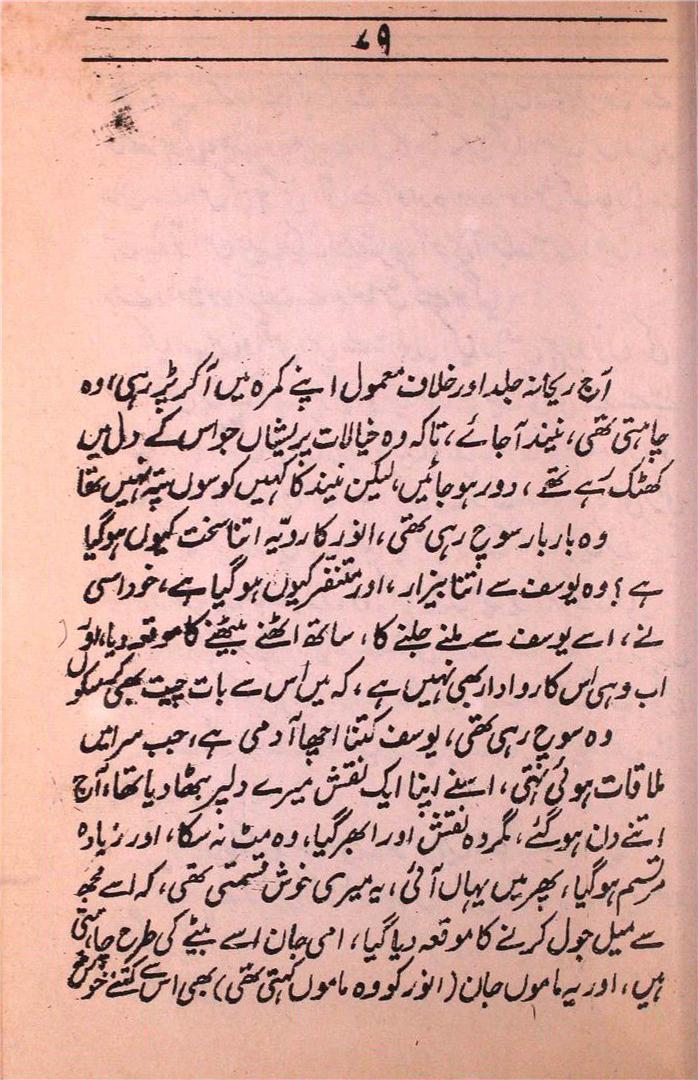 ۷۹
آج ریحانہ جلد اور خلاف معمول اپنے کمرہ میں آکر پڑ رہی، وہ
چاہتی تھی، نیند آجائے، تاکہ وہ خیالات پریشاں جو اس کے دل میں
کھٹک رہے تھے، دور ہو جائیں، لیکن نیند کا کہیں کوسوں پتہ نہیں تھا
وہ بار بار سوچ رہی تھی، انور کا رویّہ اتنا سخت کیوں ہو گیا
ہے؟ وہ یوسف سے اتنا بیزار، اور متنفّر کیوں ہو گیا ہے، خود اسی
نے، اسے یوسف سے ملنے جلنے کا، ساتھ اٹھنے بیٹھنے کا موقعہ دیا، اور
اب وہی اس کا روادار بھی نہیں ہے، کہ میں اس سے بات چیت بھی کر سکوں
وہ سوچ رہی تھی، یوسف کتنا اچھا آدمی ہے، جب سرا میں
ملاقات ہوئی تھی، اسنے اپنا ایک نقش میرے دلپر بٹھا دیا تھا، آج
اتنے دن ہو گئے، مگر وہ نقش اور ابھر گیا، وہ مٹ نہ سکا، اور زیادہ
مرتسم ہو گیا، پھر میں یہاں آئی، یہ میری خوش قسمتی تھی، کہ اسے مجھ
سے میل جول کرنے کا موقعہ دیا گیا، امی جان اسے بیٹے کی طرح چاہتی
ہیں، اور یہ ماموں جان (انور کو وہ ماموں کہتی تھی) بھی اس سے کتنے خوش